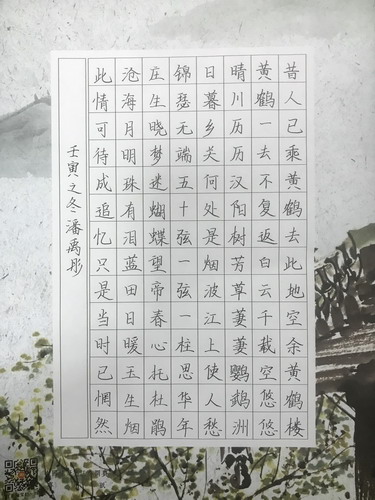 昔人已乘黄鹤去此地空余黄鹤楼
黄鹤一去不复返白云千载空悠悠
晴川历历汉阳树芳草萋萋鹦鹉洲
日暮乡关何处是烟波江上使人愁
锦瑟无端五十弦一弦一柱思华年
庄生晓梦迷蝴蝶望帝春心托杜鹃
沧海月明珠有泪蓝田日暖玉生烟
此情可待成追忆只是当时已惘然
壬寅之冬潘禹彤